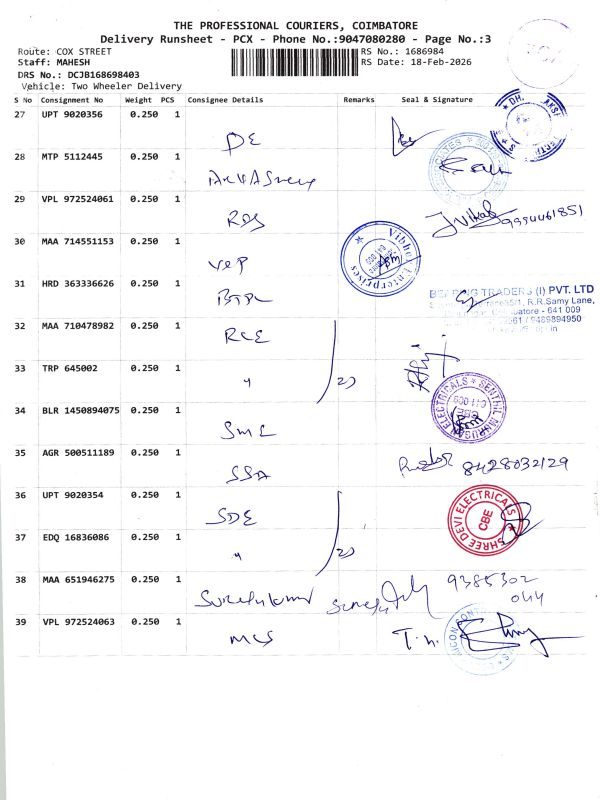 THE PROFESSIONAL COURIERS, COIMBATORE
Delivery Runsheet - PCX - Phone No.:9047080280 - Page No.:3
Route: COX STREET
RS No.: 1686984
Staff: MAHESH
RS Date: 18-Feb-2026
DRS No.: DCJB168698403
Vehicle: Two Wheeler Delivery
S No Consignment No Weight PCS Consignee Details Remarks Seal & Signature
27 UPT 9020356 0.250 1 DE
28 MTP 5112445 0.250 1
29 VPL 972524061 0.250 1 RDS J Vikab 9994461851
30 MAA 714551153 0.250 1 VEP Vibhee Enterprises
31 HRD 363336626 0.250 1 BTPL
BEARING TRADERS (I) PVT. LTD
R.R.Samy Lane,
Coimbatore - 641 009
9489894950
32 MAA 710478982 0.250 1 RCE
33 TRP 645002 0.250 1 " 2)
34 BLR 1450894075 0.250 1 SME SENTHIL MURUGAN ELECTRICALS CBE 641 009
35 AGR 500511189 0.250 1 SSA 8428032129
36 UPT 9020354 0.250 1 SDE SHREE DEVI ELECTRICALS CBE
37 EDQ 16836086 0.250 1 " 2)
38 MAA 651946275 0.250 1 Sureshkumar 9385302
044
39 VPL 972524063 0.250 1 MCS T. n.